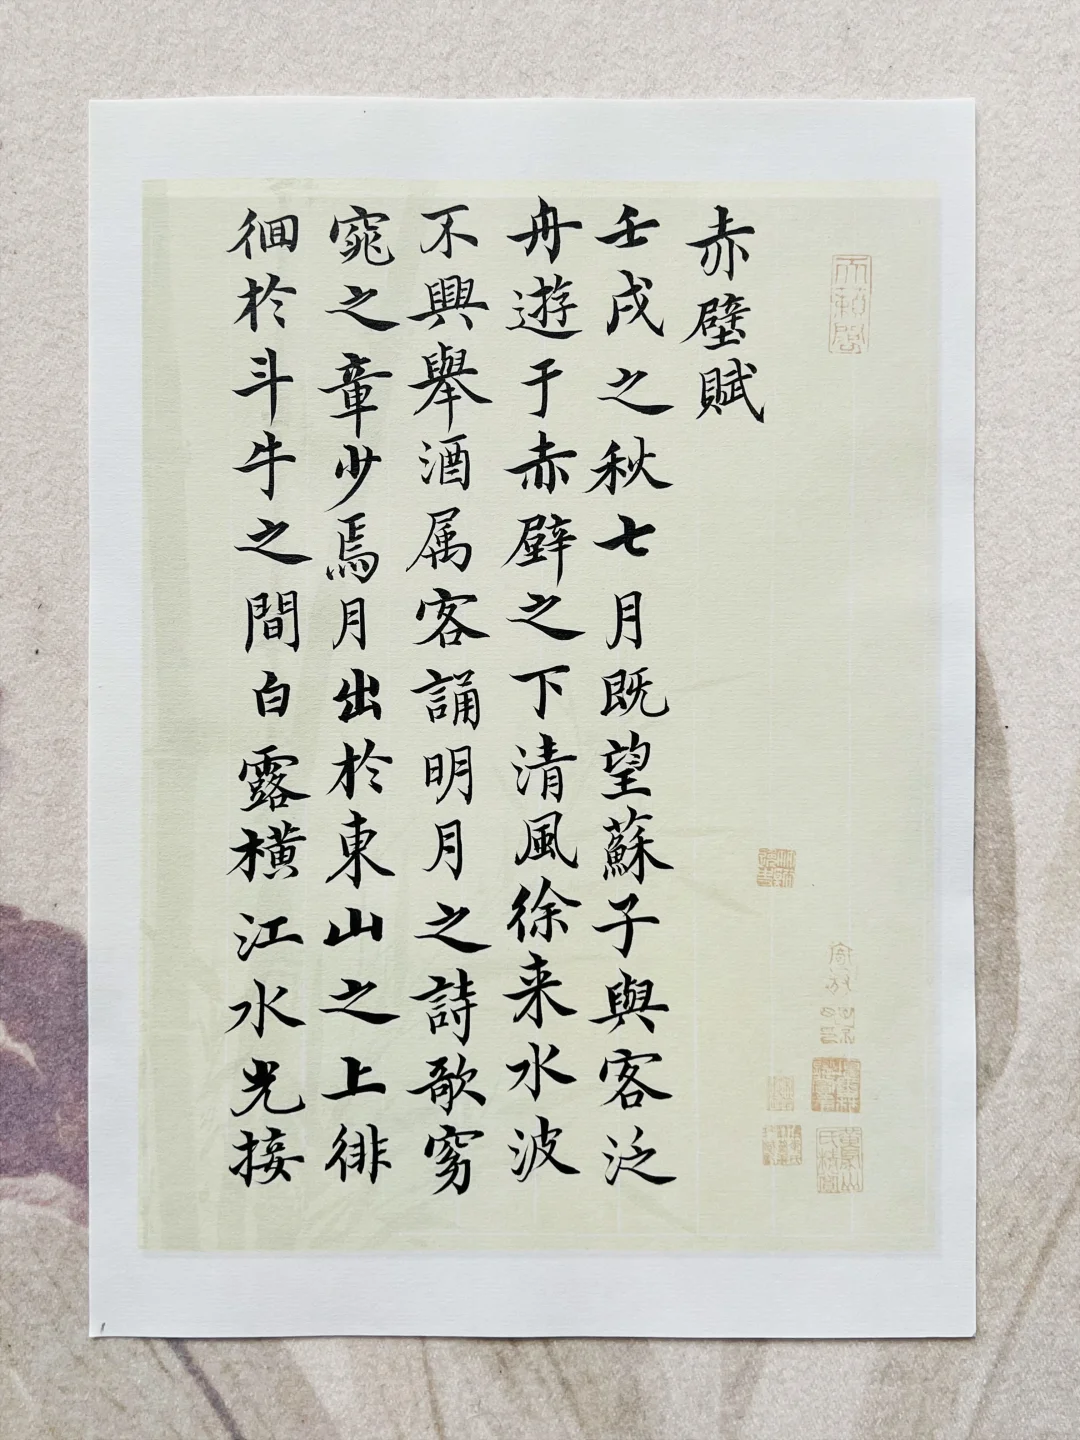 赤壁賦
壬戌之秋七月既望蘇子與客泛
舟遊于赤壁之下清風徐来水波
不興舉酒属客誦明月之詩歌窈
窕之章少焉月出於東山之上徘
徊於斗牛之間白露横江水光接